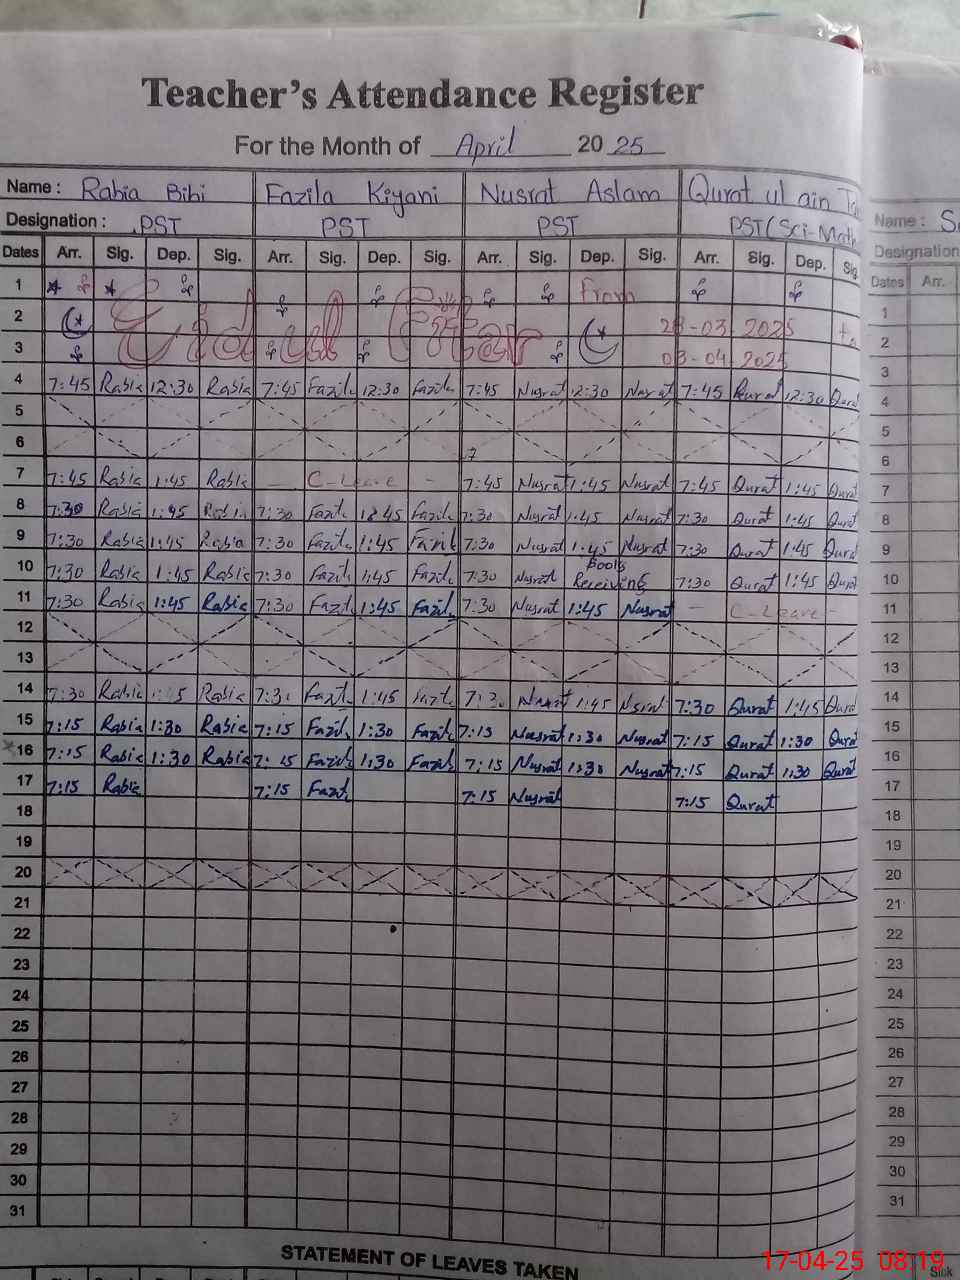 Teacher's Attendance Register
For the Month of April 20 25
Name : Rabia Bibi Fazila Kiyani Nusrat Aslam Qurat ul ain
Designation : PST PST PST PST (Sci-Math
Dates Arr. Sig. Dep. Sig. Arr. Sig. Dep. Sig. Arr. Sig. Dep. Sig. Arr. Sig. Dep. Sig
1 From
2 Eid ul Fitar 28-03-2025 to
3 03-04-2025
4 7:45 Rabia 12:30 Rabia 7:45 Fazila 12:30 Fazila 7:45 Nusrat 12:30 Nusrat 7:45 Qurat 12:30 Qurat
5
6
7 7:45 Rabia 1:45 Rabia – C-Leave – 7:45 Nusrat 1:45 Nusrat 7:45 Qurat 1:45 Qurat
8 7:30 Rabia 1:45 Rabia 7:30 Fazila 1:45 Fazila 7:30 Nusrat 1:45 Nusrat 7:30 Qurat 1:45 Qurat
9 7:30 Rabia 1:45 Rabia 7:30 Fazila 1:45 Fazila 7:30 Nusrat 1:45 Nusrat 7:30 Qurat 1:45 Qurat
10 7:30 Rabia 1:45 Rabia 7:30 Fazila 1:45 Fazila 7:30 Nusrat Books Receiving 7:30 Qurat 1:45 Qurat
11 7:30 Rabia 1:45 Rabia 7:30 Fazila 1:45 Fazila 7:30 Nusrat 1:45 Nusrat – C-Leave –
12
13
14 7:30 Rabia 1:45 Rabia 7:30 Fazila 1:45 Fazila 7:30 Nusrat 1:45 Nusrat 7:30 Qurat 1:45 Qurat
15 7:15 Rabia 1:30 Rabia 7:15 Fazila 1:30 Fazila 7:15 Nusrat 1:30 Nusrat 7:15 Qurat 1:30 Qurat
16 7:15 Rabia 1:30 Rabia 7:15 Fazila 1:30 Fazila 7:15 Nusrat 1:30 Nusrat 7:15 Qurat 1:30 Qurat
17 7:15 Rabia 7:15 Fazila 7:15 Nusrat 7:15 Qurat
18
19
20
21
22
23
24
25
26
27
28
29
30
31
STATEMENT OF LEAVES TAKEN
Name :
Designation
Dates Arr.
1
2
3
4
5
6
7
8
9
10
11
12
13
14
15
16
17
18
19
20
21
22
23
24
25
26
27
28
29
30
31
Sick
17-04-25 08:19